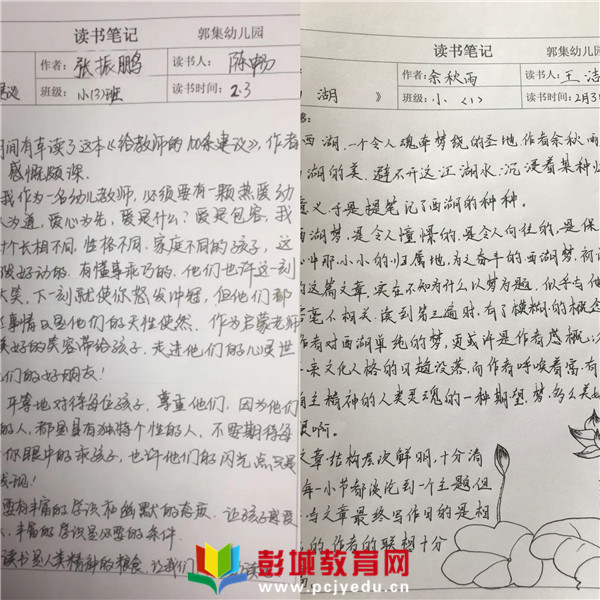 读书笔记 郭集幼儿园
作者: 张振鹏 读书人: 陈畅
班级: 小(3)班 读书时间: 2.3
期间有幸读了这本《给教师的100条建议》,作者
感慨颇深。
我作为一名幼儿教师,必须要有一颗热爱幼
为道,爱心为先,爱是什么?爱是包容。我
个长相不同,性格不同,家庭不同的孩子,这
很好动的,有懂事乖巧的,他们也许这一刻
大笑,下一刻就使你怒发冲冠,但他们都
事情只是他们的天性使然。作为启蒙老师
美好的笑容带给孩子,走进他们的心灵世
们的好朋友!
平等地对待每位孩子,尊重他们,因为他们
的人,都是具有独特个性的人,不要期待每
你眼中的乖孩子,也许他们的闪光点只是
发现!
要有丰富的学识和幽默的
丰富的学识是必要的条件
读书是人类精神的粮食,让我们
读书笔记 郭集幼儿园
作者: 余秋雨 读书人: 王洁
湖 》 班级: 小(1) 读书时间: 2月3
西湖,一个令人魂牵梦绕的圣地,作者余秋雨
湖的美,避不开这江湖水,沉浸着某种
意义,于是提笔记了西湖的种种。
西湖梦,是令人憧憬的,是令人向往的,是保
心中那小小的归属地,为之奋斗的西湖梦,初
的这篇文章,实在不知为什么以梦为题,似乎与他
毫不相关,读到第三遍时,有了模糊的概念
作者对西湖单纯的梦,更或许是作者感概
来文化人格的日趋没落,而作者呼唤着富有
自主精神的人类灵魂的一种期望,梦,多么美
啊。
文章结构层次鲜明,十分清
每一小节都谈论到一个主题,但
与文章最终写作目的是相
的,作者的联想十分
彭城教育网
www.pcjyedu.cn